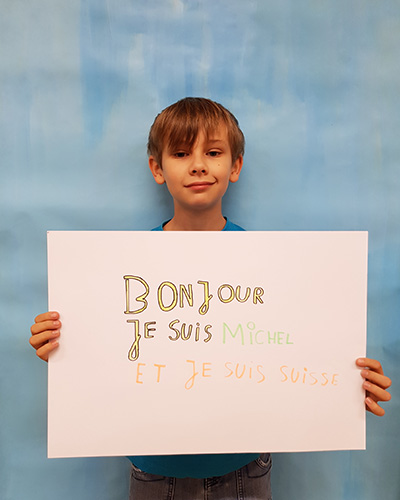 BONJOUR
JE SUIS MiCHEL
ET JE SUIS SUISSE